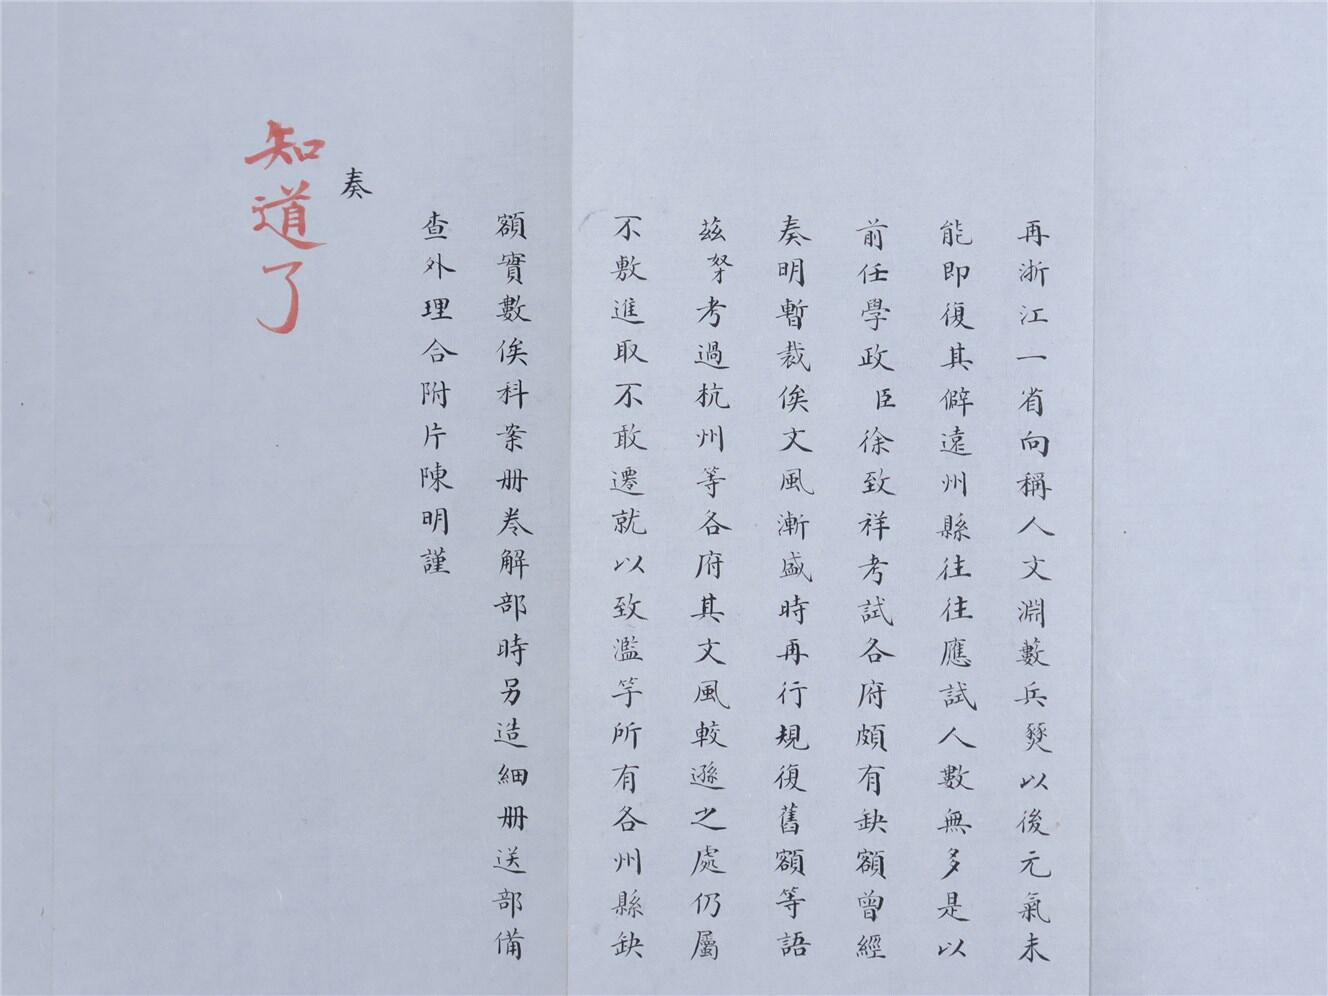 再浙江一省向稱人文淵藪兵燹以後元氣未
能即復其僻遠州縣往往應試人數無多是以
前任學政臣徐致祥考試各府頗有缺額曾經
奏明暫裁俟文風漸盛時再行規復舊額等語
茲孥考過杭州等各府其文風較遜之處仍屬
不敷進取不敢遷就以致濫竽所有各州縣缺
額實數俟科案册卷解部時另造細册送部備
查外理合附片陳明謹
奏
知道了